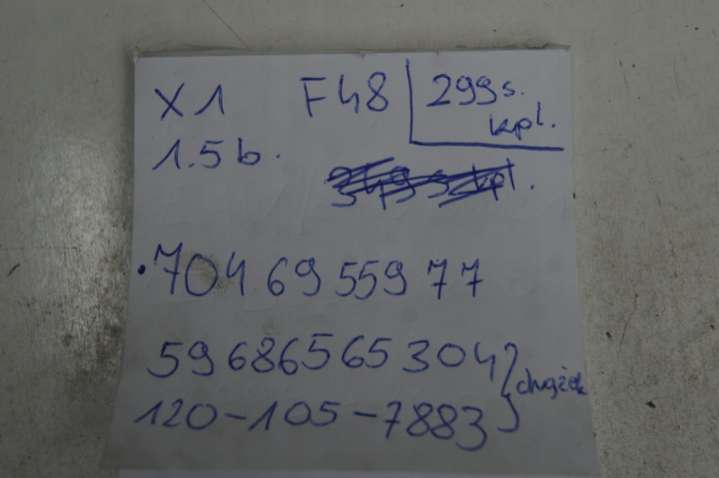 X1 F48 299 s.
kpl.
1.5 b.
704 69 559 77
59686565304
120-105-7883